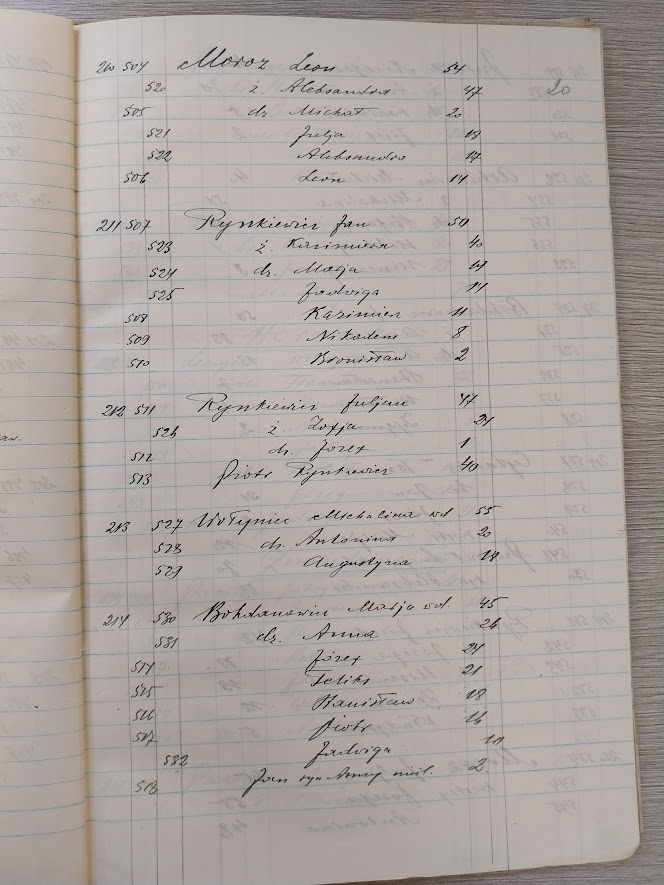 20
210 504 Moroz Leon 54
520 ż. Aleksandra 47
505 dz. Michał 20
521 Julja 18
522 Aleksandra 17
506 Leon 14
211 507 Rynkiewicz Jan 50
523 ż. Kazimiera 40
524 dz. Marja
525 Jadwiga
508 Kazimierz 11
509 Nikodem 8
510 Bronisław 2
212 511 Rynkiewicz Juljan 47
526 ż Zofja 21
512 dz. Józef 1
513 Piotr Rynkiewicz 40
213 527 Wołyniec Michalina wd. 55
528 dz. Antonina 20
529 Augustyna 18
214 530 Bohdanowicz Marja wd. 45
531 dz. Anna 26
514 Józef 24
515 Feliks 21
516 Stanisław 18
517 Piotr
532 Jadwiga
518 Jan syn Anny 2